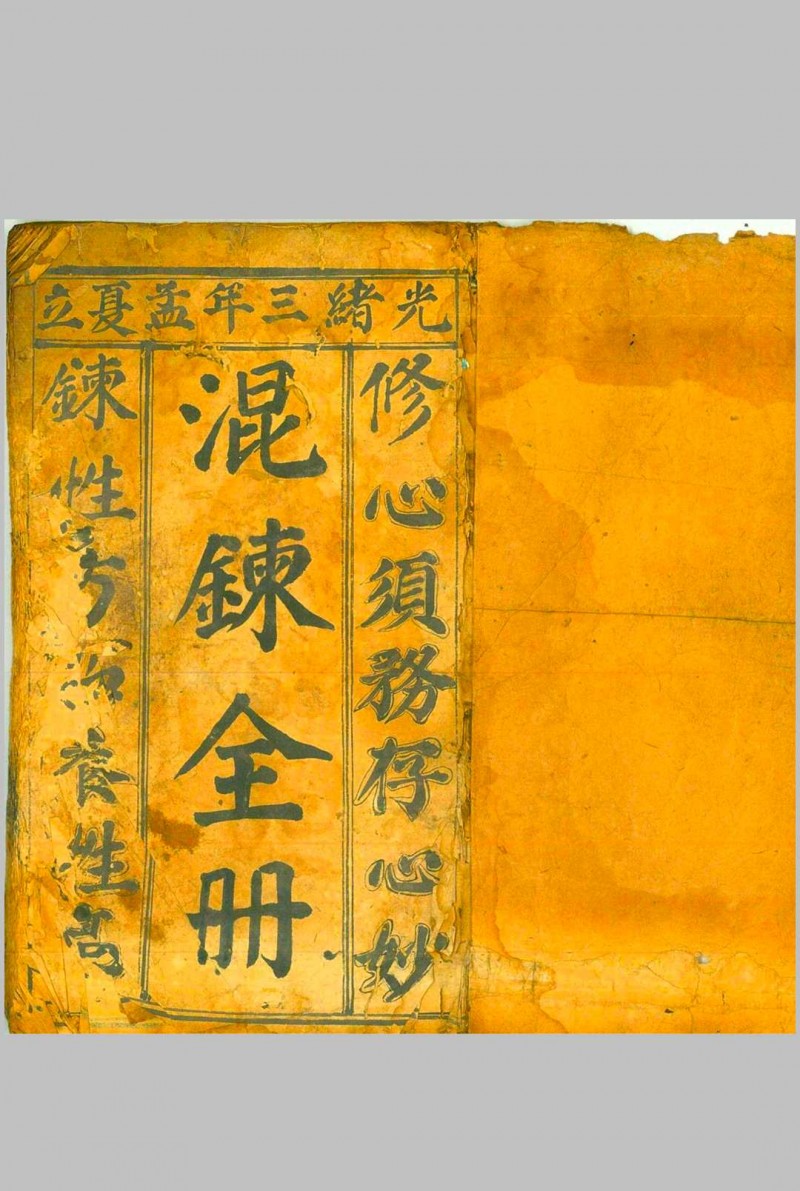 光緒三年孟夏立
修心須務存心妙
混鍊全册
鍊性養性高